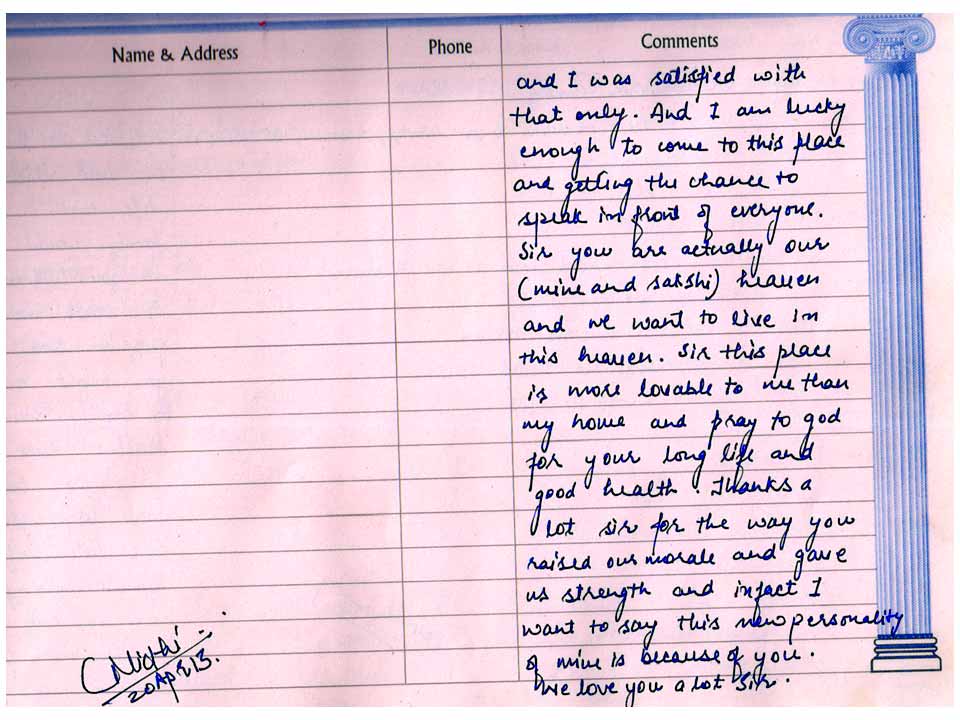 Name & Address Phone Comments
and I was satisfied with
that only. And I am lucky
enough to come to this place
and getting the chance to
speak in front of everyone.
Sir you are actually our
(mine and sakshi) heaven
and we want to live in
this heaven. Sir this place
is more lovable to me than
my home and pray to god
for your long life and
good health. Thanks a
lot sir for the way you
raised our morale and gave
us strength and infact I
want to say this new personality
of mine is because of you.
We love you a lot Sir.
Nidhi
20 Apr 13.